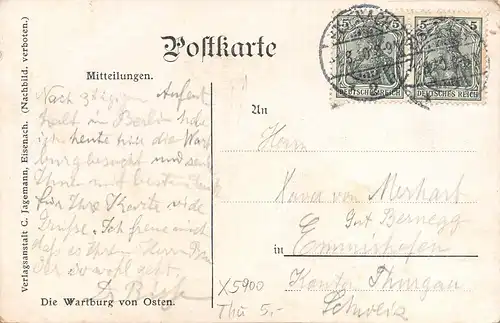 Postkarte
Mitteilungen.
An
in
Nach 3tägigem Aufent
halt in Berlin habe
ich heute früh die Wart
burg besucht und sende
Ihnen mit bestem Dank
für Ihre Karte viele
Grüße. Ich freue mich
daß es Ihrem Herrn
so wohl geht.
Herrn
von Merhart
Gut Bernegg
Emmishofen
Kanton Thurgau
Schweiz
X5900
Thü 5,-
Die Wartburg von Osten.
Verlagsanstalt C. Jagemann, Eisenach. (Nachbild. verboten.)
5 5
DEUTSCHES REICH
5 5
DEUTSCHES REICH